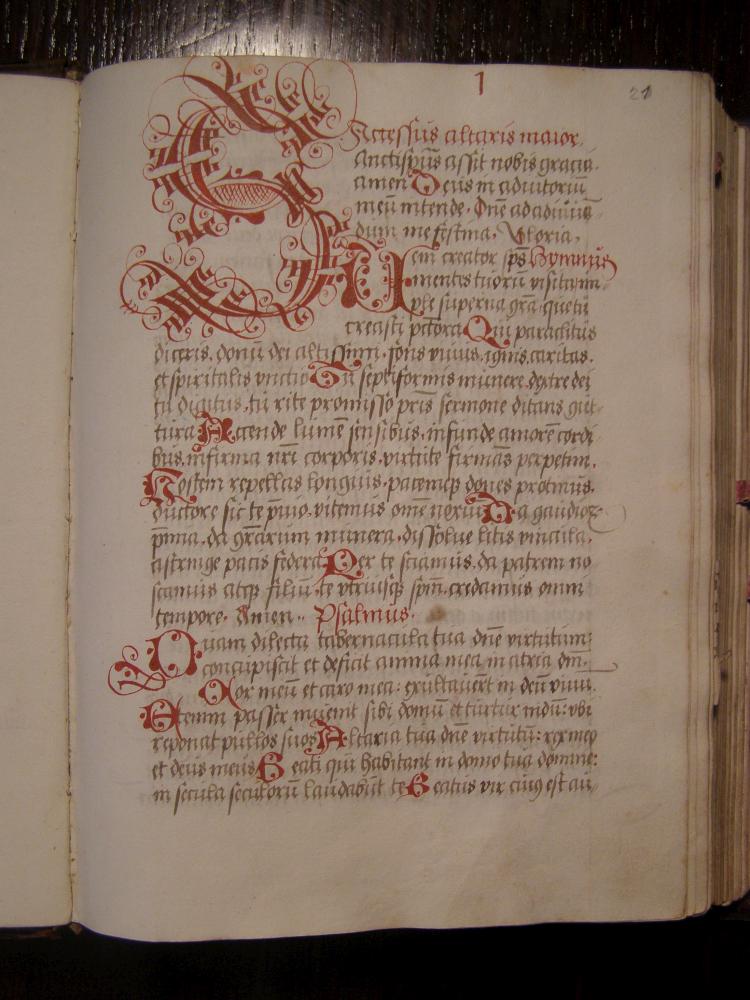 1
21
Accessus altaris maior
Sanctisp̄us assit nobis gracia.
amen Deus in adiutoriū
meū intende. Dn̄e ad adiuuā
dum me festina. Gloria.
Veni creator sp̄s Hymnus
mentes tuorū visita, im
ple superna gr̄a. que tu
creasti pectora Qui paraclitus
diceris. donū dei altissimi. fons viuus. ignis. caritas.
et spiritalis vnctio Tu septiformis munere. dextre dei
tu digitus. tu rite promisso pr̄is sermone ditans gut
tura Accende lumē sensibus. infunde amorē cordi
bus. infirma nr̄i corporis. virtute firmās perpetim.
Hostem repellas longius. pacemq; dones protinus.
ductore sic te p̄uio. vitemus om̄e noxiū Da gaudior
p̄mia. da gr̄arum munera. dissolue litis vincula.
astringe pacis federa Per te sciamus. da patrem no
scamus atq; filiū. te vtriusq; sp̄m. credamus omni
tempore. Amen. Psalmus.
Quam dilecta tabernacula tua dn̄e virtutum:
concupiscit et deficit anima mea in atria dn̄i.
Cor meū et caro mea: exultauerūt in deū viuū.
Etenim passer inuenit sibi domū et turtur nidū: vbi
reponat pullos suos Altaria tua dn̄e virtutū: rex meꝰ
et deus meus Beati qui habitant in domo tua domine:
in secula seculorū laudabūt te Beatus vir cuiꝰ est au